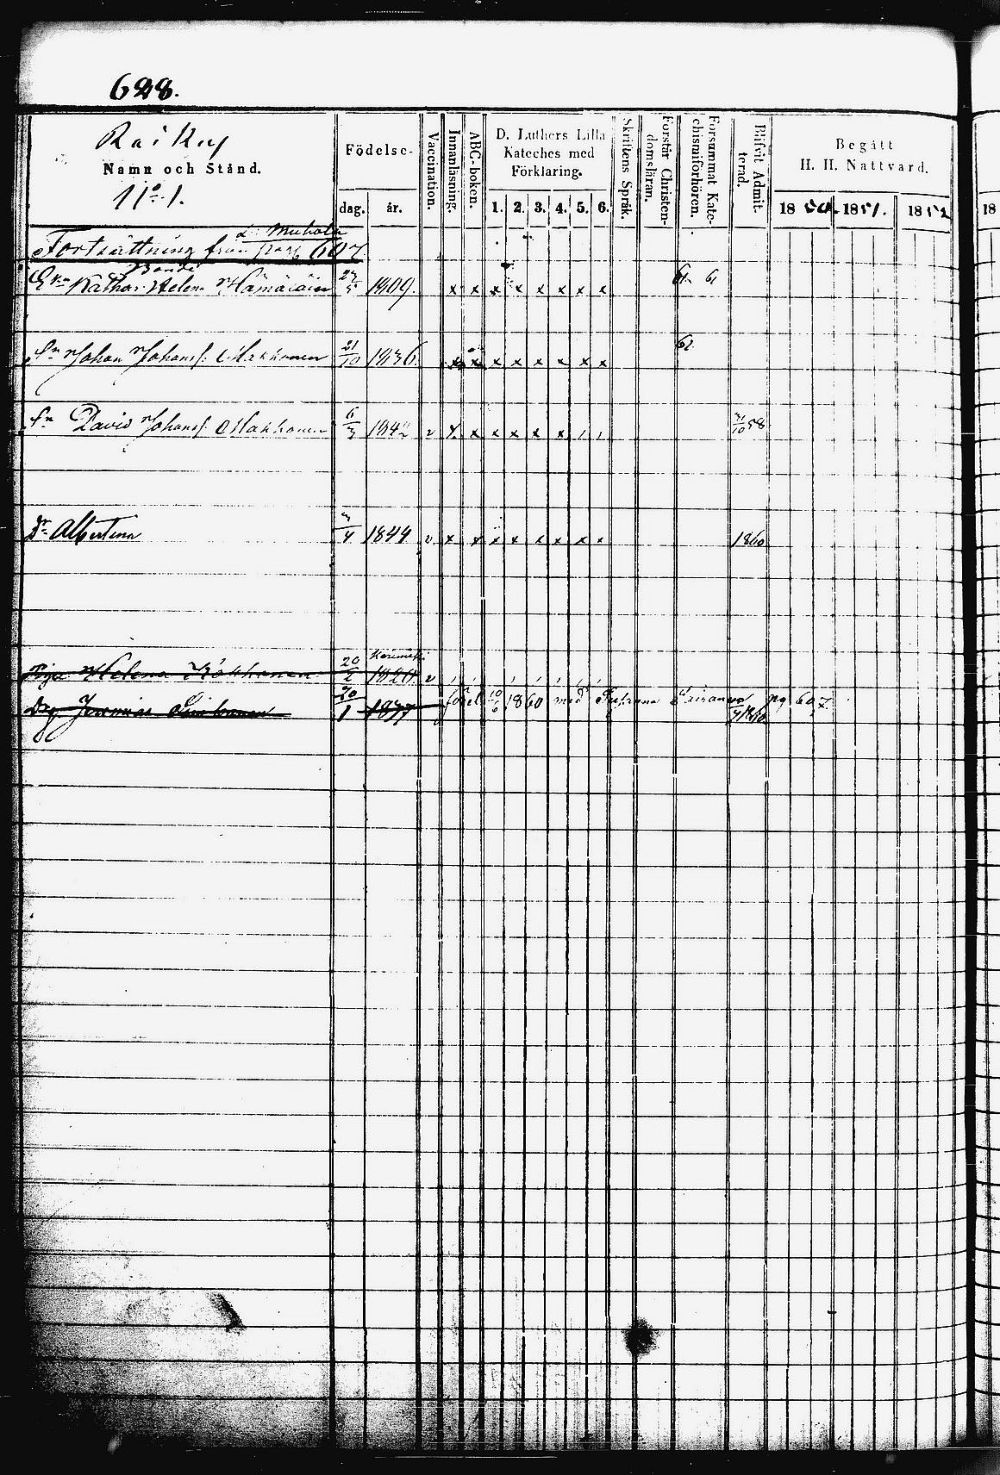 628.
Raikuu
Namn och Stånd.
N:o 1.
Födelse-
dag. år.
Vaccination.
Innanläsning.
ABC-boken.
D. Luthers Lilla
Kateches med
Förklaring.
1. 2. 3. 4. 5. 6.
Skriftens Språk.
Förstår Christen-
domsläran.
Försummat Kate-
chismiförhören.
Blifvit Admit-
terad.
Begått
H. H. Nattvard.
1850. 1851. 1852
18
Fortsättning från pag. 627
Bonde
Enk. Kathar. Helena Hämäläin 1809. x x x x x x x x 61 61
Sn Johan Johanss. Makkonen 21/10 1836. x x x x x x x x 62
Sn David Johanss. Makkonen 6/3 184 v x x x x x x 58
Dr Albertina 1844 v x x x x x x x x 1860
Kerimäki
Piga Helena Kokkonen 20/2 1826 v
Drg Jeremias 20/1 1837 1860 med Susanna pag 607